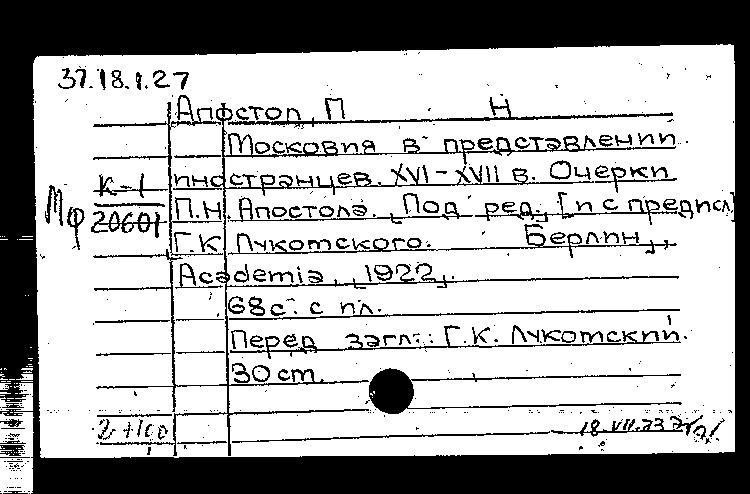 37.18.1.27
Апостол, П Н
Московия в представлении
К-1 иностранцев. XVI-XVII в. Очерки
Мф 20601 П.Н. Апостола. Под ред. [и с предисл]
Г.К Лукотского. Берлин,
Academia, 1922.
68с. с ил.
Перед загл.: Г.К. Лукотский.
30 cm.
18.VII.73